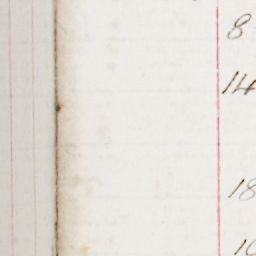 8
14
18
10